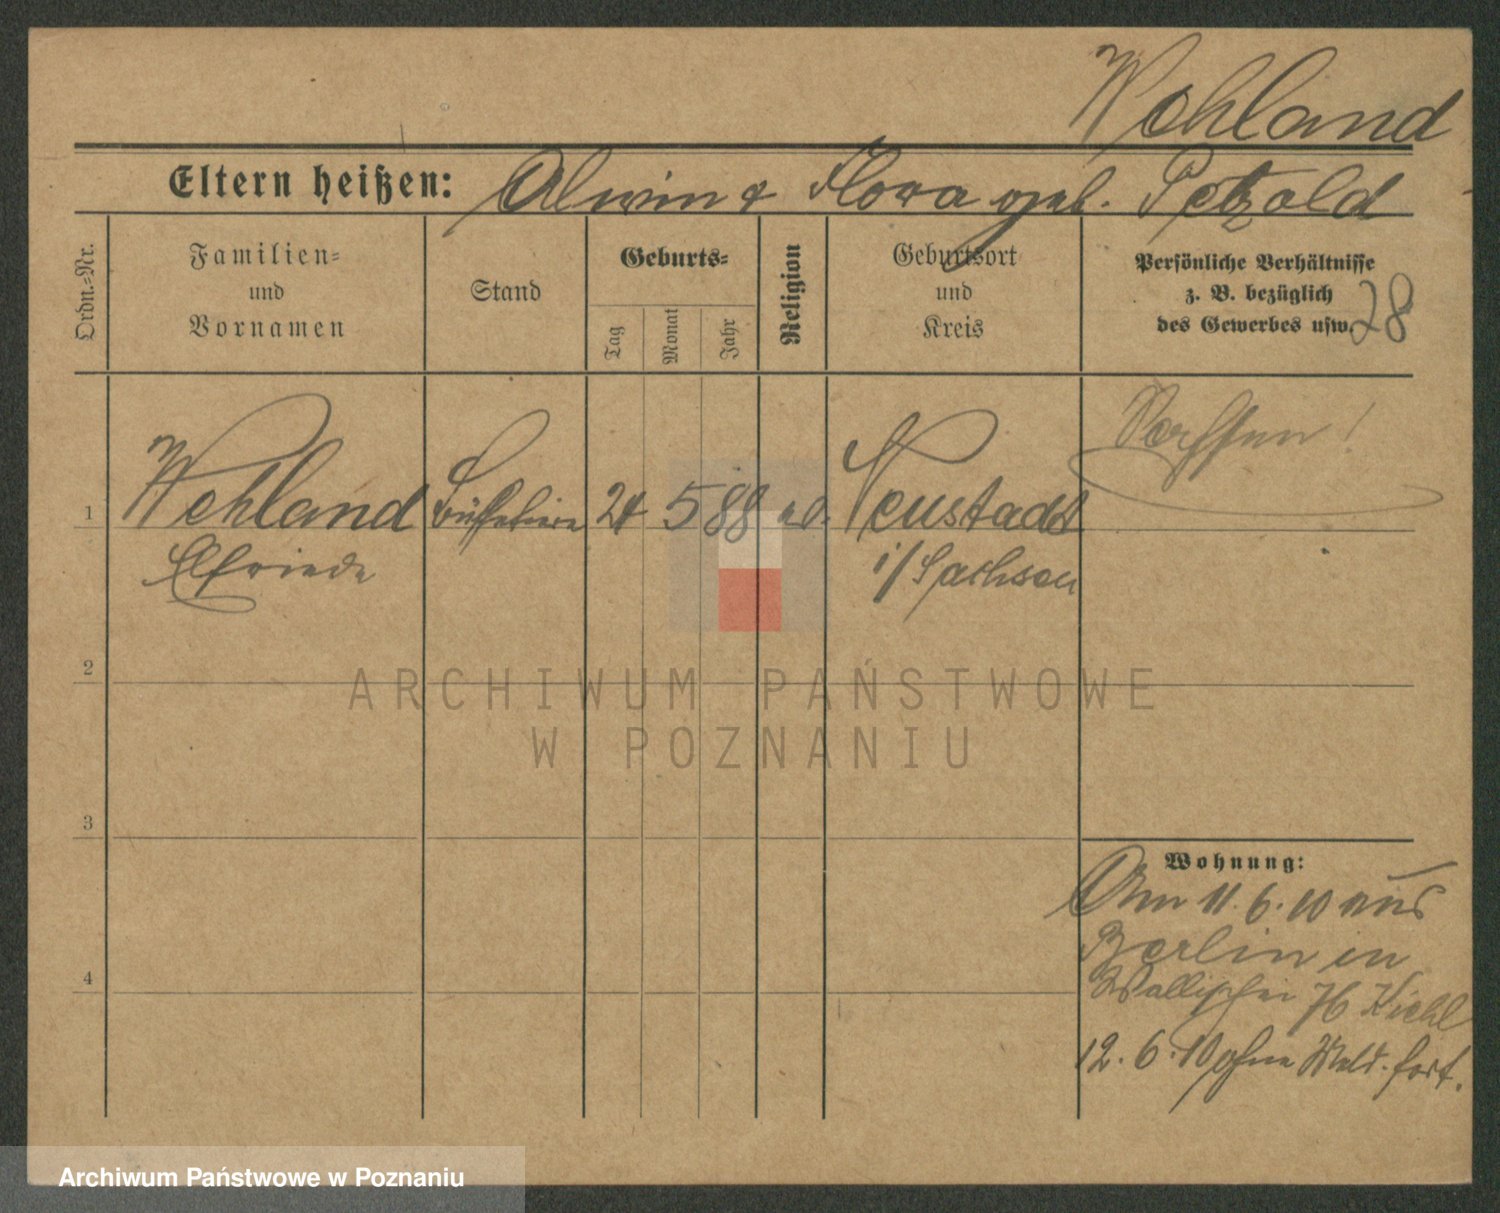 Wehland
Eltern heißen: Alwin & Flora geb. Petzold
Ordn.-Nr.
Familien-
und
Vornamen
Stand
Geburts-
Tag
Monat
Jahr
Religion
Geburtsort
und
Kreis
Persönliche Verhältnisse
z. B. bezüglich
des Gewerbes usw.
28
1 Wehland Büffetiere 24 5 88 Neustadt
Elfriede i/Sachsen
2
ARCHIWUM PAŃSTWOWE
W POZNANIU
3
Wohnung:
Am 11.6.10 aus
Berlin in
Wallischei 76 Kiehl
4
12.6.10 ohne Meld. fort.
Archiwum Państwowe w Poznaniu